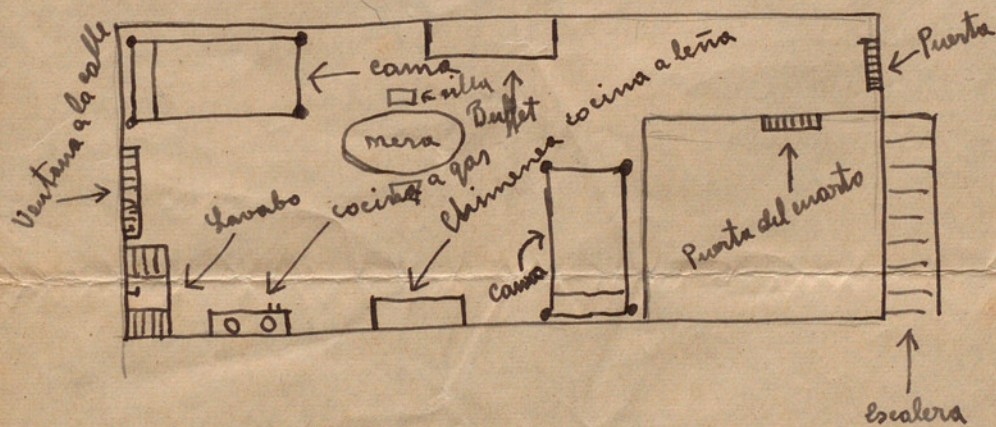 Ventana a la calle
cama
silla
Buffet
mesa
Puerta
Lavabo
cocina a gas
Chimenea cocina a leña
cama
Puerta del cuarto
Escalera